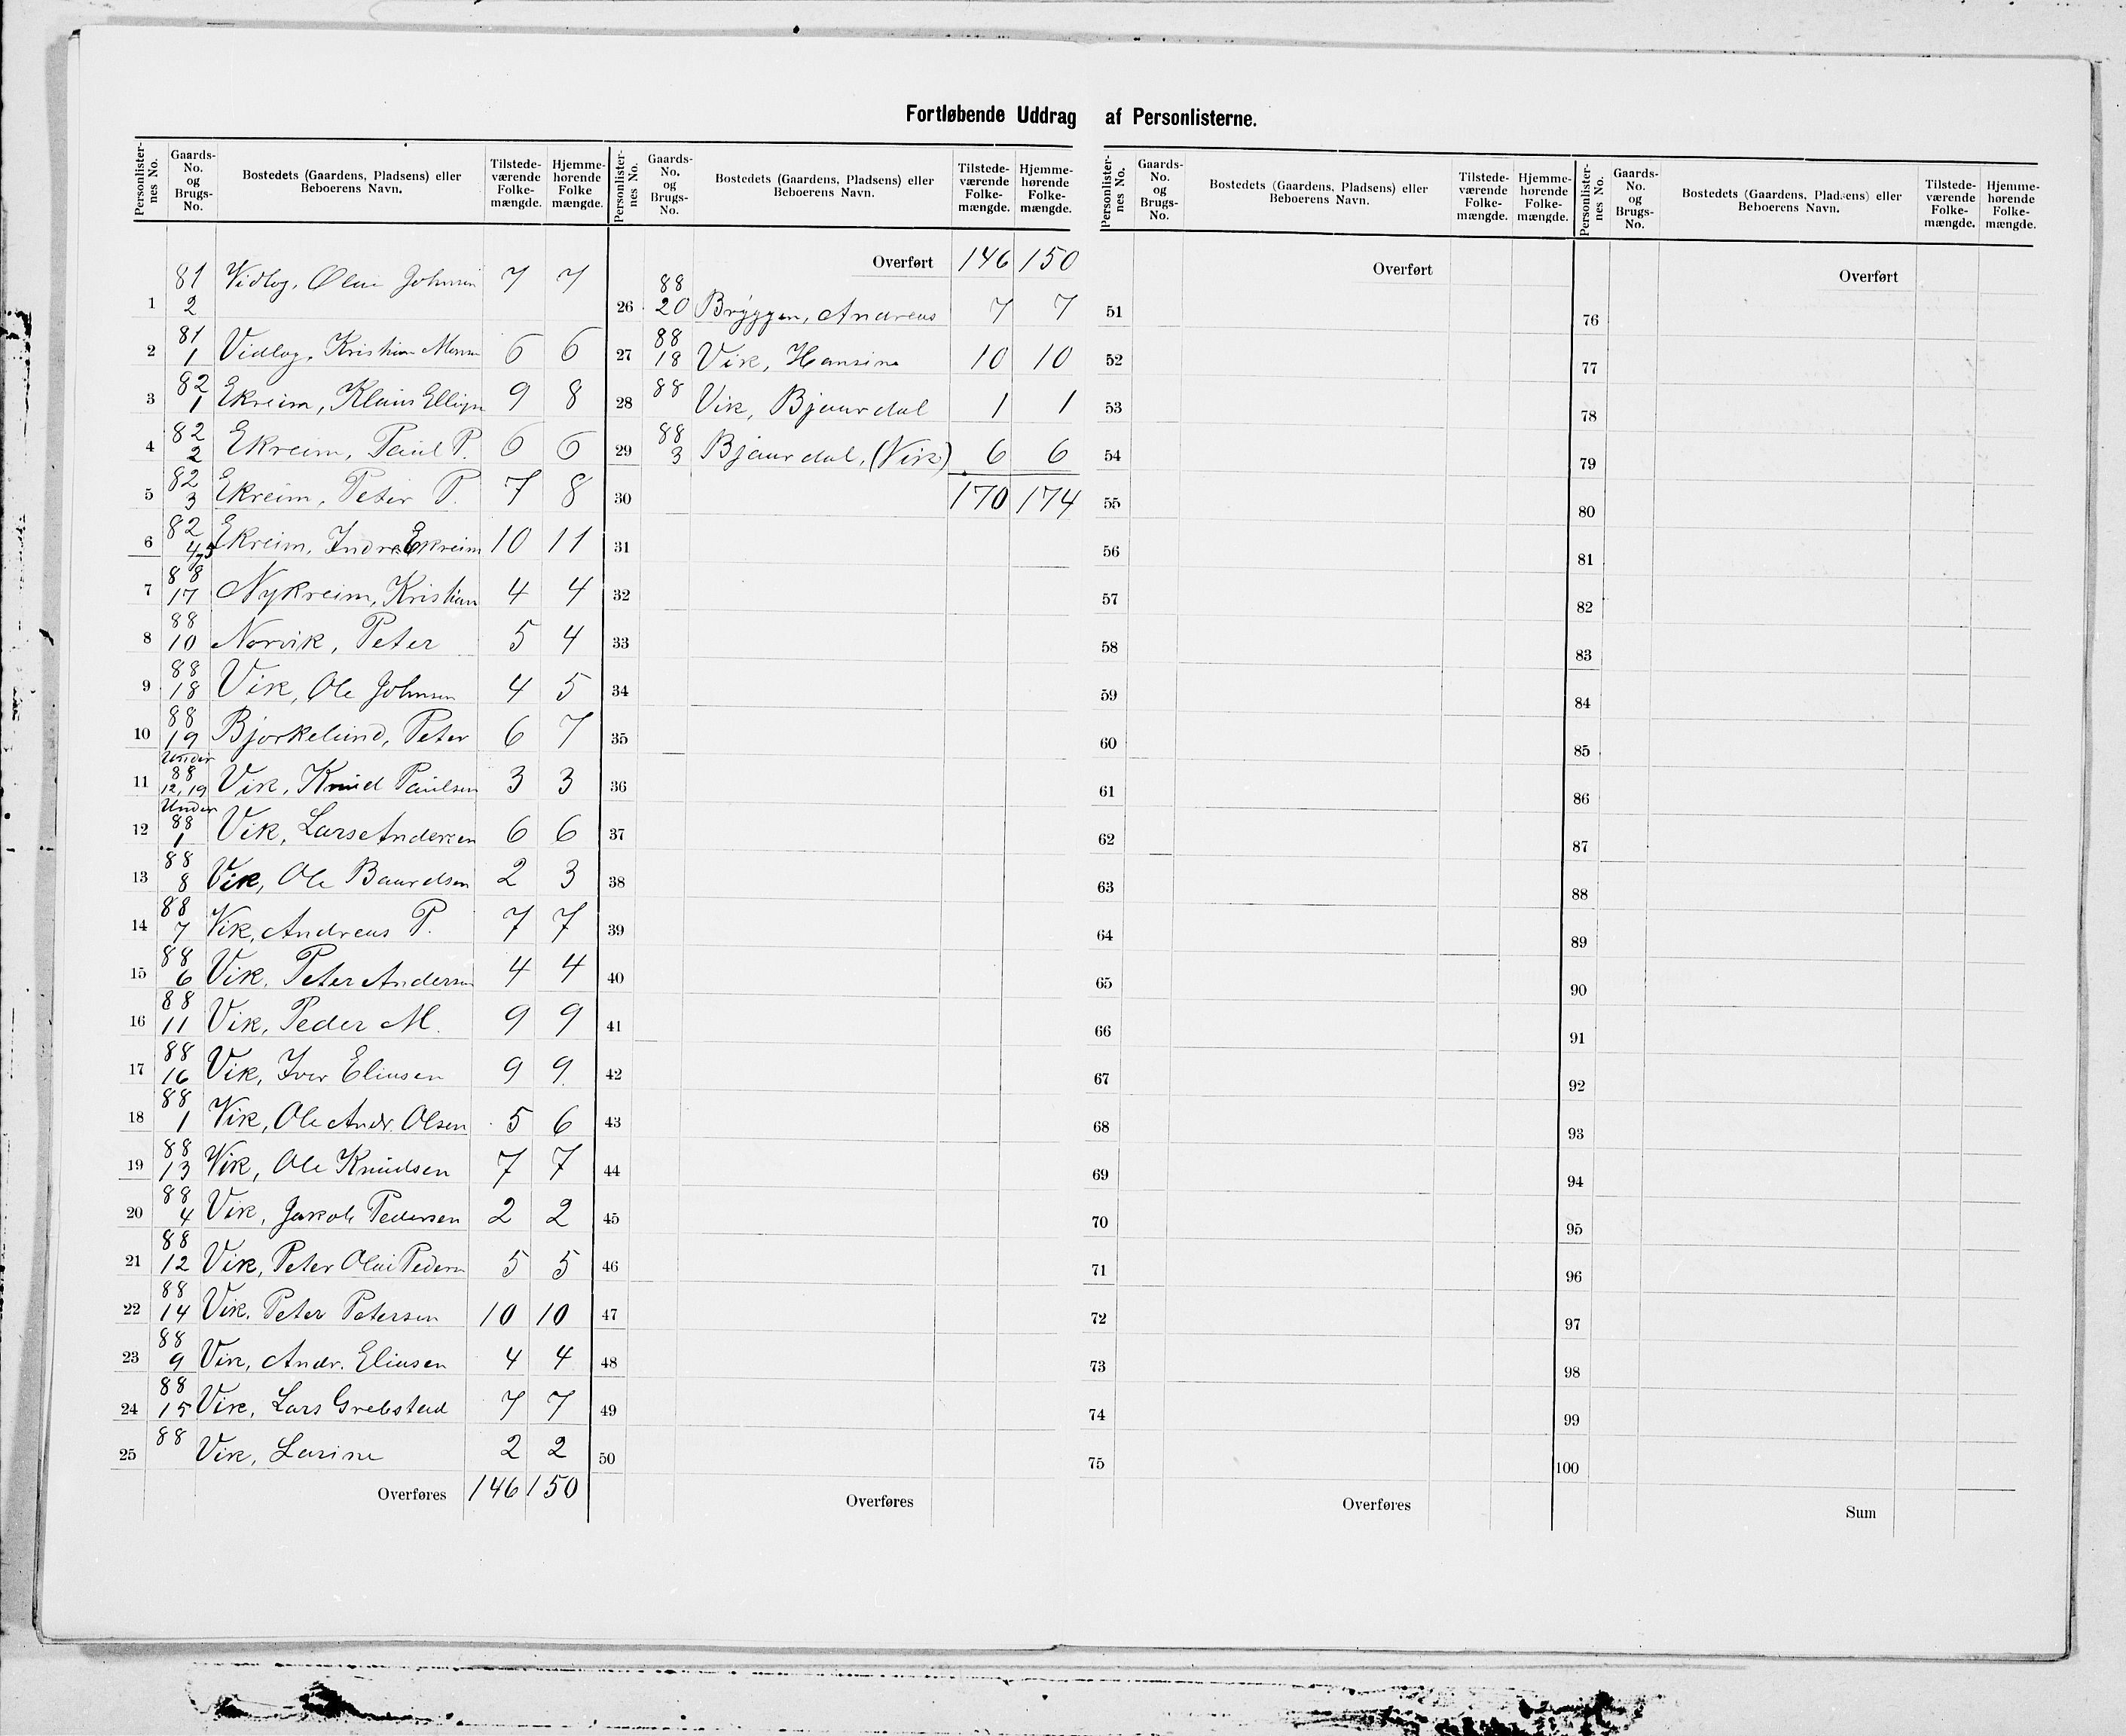 Fortløbende Uddrag af Personlisterne.
Personlisternes No. Gaards-No. og Brugs-No. Bostedets (Gaardens, Pladsens) eller Beboerens Navn. Tilstedeværende Folkemængde. Hjemmehørende Folkemængde.
1 81 2 Vidlog, Olai Johnsen 7 7
2 81 1 Vidlog, Kristian Monsen 6 6
3 82 1 Ekreim, Klaus 9 8
4 82 2 Ekreim, Paul P. 6 6
5 82 3 Ekreim, Peter P. 7 8
6 82 4,5 Ekreim, Indre Ekreim 10 11
7 88 17 Nykreim, Kristian 4 4
8 88 10 Norvik, Peter 5 4
9 88 18 Vik, Ole Johnsen 4 5
10 88 19 Bjørkelund, Peter 6 7
11 Under 88 12,19 Vik, Knud Paulsen 3 3
12 Under 88 1 Vik, Lars Andersen 6 6
13 88 8 Vik, Ole Baurdsen 2 3
14 88 7 Vik, Andreas P. 7 7
15 88 6 Vik, Peter Andersen 4 4
16 88 11 Vik, Peder M. 9 9
17 88 16 Vik, Iver Eliasen 9 9
18 88 1 Vik, Ole Andr. Olsen 5 6
19 88 13 Vik, Ole Knudsen 7 7
20 88 4 Vik, Jakob Pedersen 2 2
21 88 12 Vik, Peter Olai Pedersen 5 5
22 88 14 Vik, Peter Petersen 10 10
23 88 9 Vik, Andr. Eliasen 4 4
24 88 15 Vik, Lars Grebstad 7 7
25 88 Vik, Larine 2 2
Overføres 146 150
Personlisternes No. Gaards-No. og Brugs-No. Bostedets (Gaardens, Pladsens) eller Beboerens Navn. Tilstedeværende Folkemængde. Hjemmehørende Folkemængde.
Overført 146 150
26 88 20 Bryggen, Andreas 7 7
27 88 18 Vik, Hansine 10 10
28 88 Vik, Bjaurdal 1 1
29 88 3 Bjaurdal, (Vik) 6 6
30 170 174
31
32
33
34
35
36
37
38
39
40
41
42
43
44
45
46
47
48
49
50
Overføres
Personlisternes No. Gaards-No. og Brugs-No. Bostedets (Gaardens, Pladsens) eller Beboerens Navn. Tilstedeværende Folkemængde. Hjemmehørende Folkemængde.
Overført
51
52
53
54
55
56
57
58
59
60
61
62
63
64
65
66
67
68
69
70
71
72
73
74
75
Overføres
Personlisternes No. Gaards-No. og Brugs-No. Bostedets (Gaardens, Pladsens) eller Beboerens Navn. Tilstedeværende Folkemængde. Hjemmehørende Folkemængde.
Overført
76
77
78
79
80
81
82
83
84
85
86
87
88
89
90
91
92
93
94
95
96
97
98
99
100
Sum